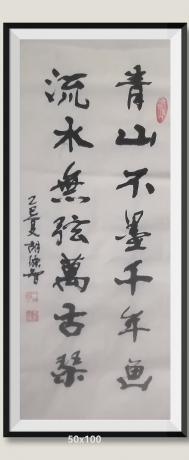 青山不墨千年画
流水無弦萬古琴
乙巳夏
50x100